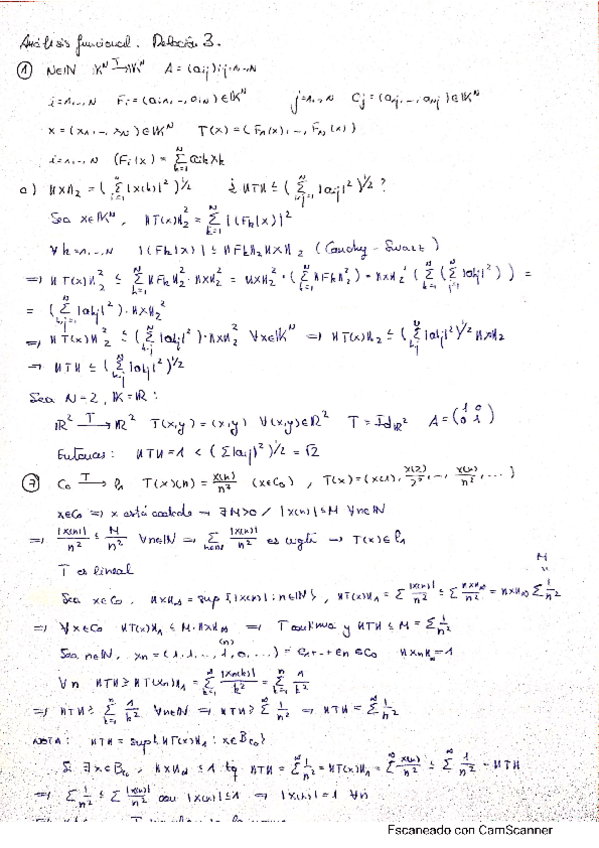 Análisis funcional. Relación 3.
① N∈ℕ 𝕂^N →^T 𝕂^N A = (aij) i,j=1,..,N
i=1,..,N Fi = (ai1,..,aiN) ∈ 𝕂^N j=1,..,N Cj = (a1j,..,aNj) ∈ 𝕂^N
x = (x1,..,xN) ∈ 𝕂^N T(x) = (F1(x),..,FN(x))
i=1,..,N (Fi|x) = Σ_{k=1}^N aik xk
a) ‖x‖₂ = (Σ |x(k)|²)^{1/2} ¿‖T‖ ≤ (Σ_{i,j=1}^N |aij|²)^{1/2}?
Sea x∈𝕂^N, ‖T(x)‖₂² = Σ_{k=1}^N |(Fk|x)|²
∀k=1,..,N |(Fk|x)| ≤ ‖Fk‖₂ ‖x‖₂ (Cauchy-Swartz)
⇒ ‖T(x)‖₂² ≤ Σ_{k=1}^N ‖Fk‖₂² · ‖x‖₂² = ‖x‖₂² · (Σ_{k=1}^N ‖Fk‖₂²) = ‖x‖₂² (Σ_{k=1}^N (Σ_{j=1}^N |akj|²)) =
= (Σ_{k,j=1}^N |akj|²) · ‖x‖₂²
⇒ ‖T(x)‖₂² ≤ (Σ_{k,j}^N |akj|²) · ‖x‖₂² ∀x∈𝕂^N ⇒ ‖T(x)‖₂ ≤ (Σ_{k,j}^N |akj|²)^{1/2} ‖x‖₂
⇒ ‖T‖ ≤ (Σ_{k,j}^N |akj|²)^{1/2}
Sea N=2, 𝕂=ℝ:
ℝ² →^T ℝ² T(x,y) = (x,y) ∀(x,y)∈ℝ² T = Id_{ℝ²} A = (1 0 / 0 1)
Entonces: ‖T‖ = 1 < (Σ|aij|²)^{1/2} = √2
⑦ C₀ →^T ℓ₁ T(x)(n) = x(n)/n² (x∈C₀), T(x) = (x(1), x(2)/2², .., x(n)/n², ...)
x∈C₀ ⇒ x está acotada → ∃M>0 / |x(n)| ≤ M ∀n∈ℕ
⇒ |x(n)|/n² ≤ M/n² ∀n∈ℕ ⇒ Σ_{n∈ℕ} |x(n)|/n² es cvgte → T(x)∈ℓ₁
T es lineal
Sea x∈C₀, ‖x‖∞ = sup{|x(n)| : n∈ℕ}, ‖T(x)‖₁ = Σ |x(n)|/n² ≤ Σ ‖x‖∞/n² = ‖x‖∞ Σ 1/n² = M
⇒ ∀x∈C₀ ‖T(x)‖₁ ≤ M·‖x‖∞ ⇒ T continua y ‖T‖ ≤ M = Σ 1/n²
Sea n∈ℕ, xn = (1,1,..,1^{(n)},0,...) = e1+..+en ∈C₀ ‖xn‖∞=1
∀n ‖T‖ ≥ ‖T(xn)‖₁ = Σ_{k=1}^n |xn(k)|/k² = Σ_{k=1}^n 1/k²
⇒ ‖T‖ ≥ Σ_{k=1}^n 1/k² ∀n∈ℕ ⇒ ‖T‖ ≥ Σ^∞ 1/n² ⇒ ‖T‖ = Σ^∞ 1/n²
NOTA: ‖T‖ = sup{‖T(x)‖₁ : x∈B_{C₀}}
Si ∃x∈B_{C₀}, ‖x‖∞ ≤ 1 tq ‖T‖ = Σ^∞ 1/n² = ‖T(x)‖₁ = Σ^∞ |x(n)|/n² ≤ Σ^∞ 1/n² = ‖T‖
⇒ Σ^∞ 1/n² ≤ Σ |x(n)|/n² con |x(n)| ≤ 1 ⇒ |x(n)| = 1 ∀n
Escaneado con CamScanner